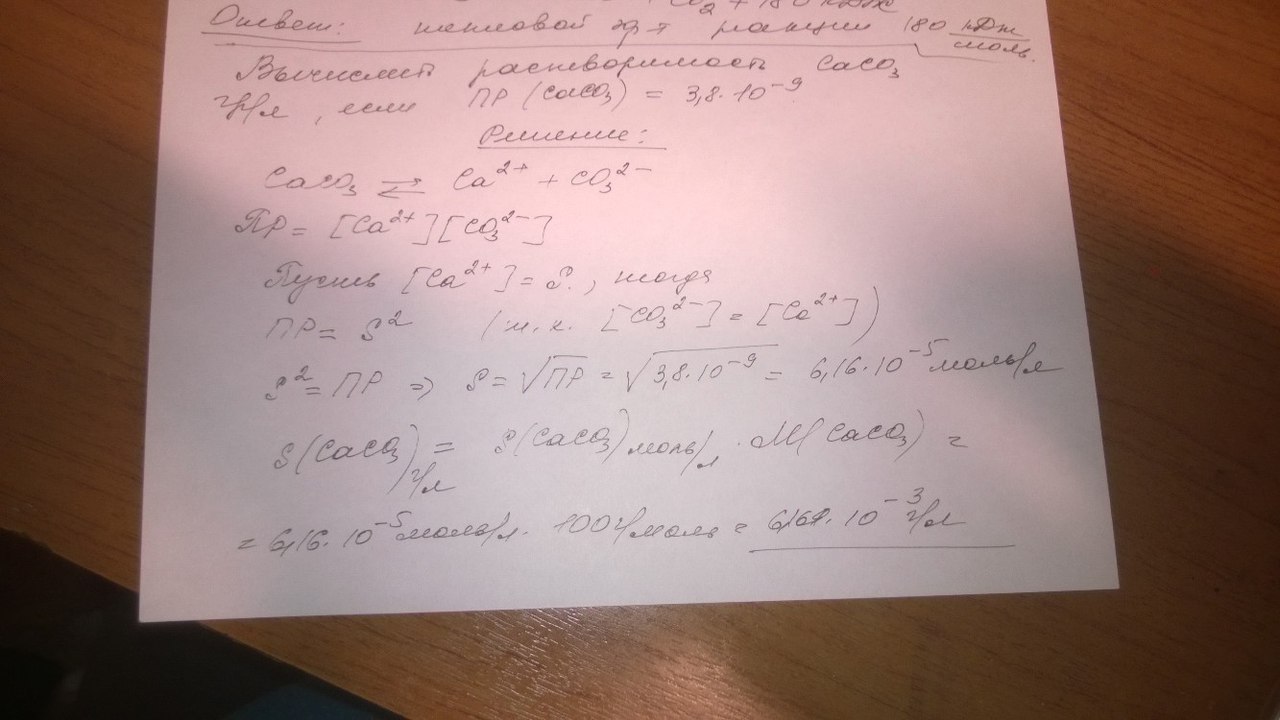 CO₂ + 180 кДж
Ответ: тепловой эф-т реакции 180 кДж/моль.
Вычислить растворимость CaCO₃
г/л, если ПР (CaCO₃) = 3,8·10⁻⁹
Решение:
CaCO₃ ⇄ Ca²⁺ + CO₃²⁻
ПР = [Ca²⁺][CO₃²⁻]
Пусть [Ca²⁺] = S., тогда
ПР = S² (т.к. [CO₃²⁻] = [Ca²⁺])
S² = ПР => S = √ПР = √3,8·10⁻⁹ = 6,16·10⁻⁵ моль/л
S(CaCO₃) г/л = S(CaCO₃) моль/л · M(CaCO₃) =
= 6,16·10⁻⁵ моль/л · 100 г/моль = 6,16·10⁻³ г/л